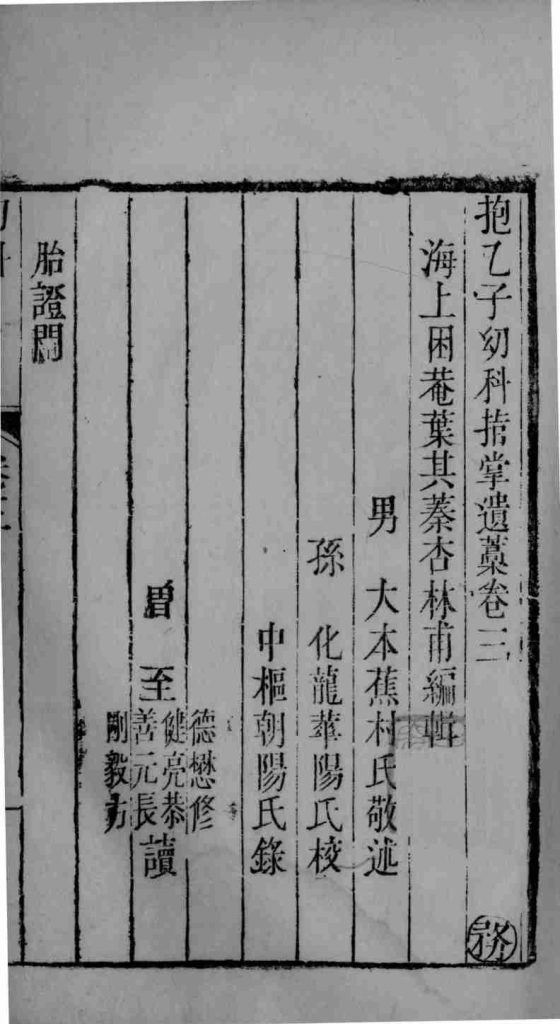 抱乙子幼科指掌遺藁卷三
海上困菴葉其蓁杏林甫編輯
男 大本蕉村氏敬述
孫 化龍華陽氏校
中樞朝陽氏錄
曾 至
德懋修
健亮恭
善元長
剛毅方
讀
胎證門
卷三